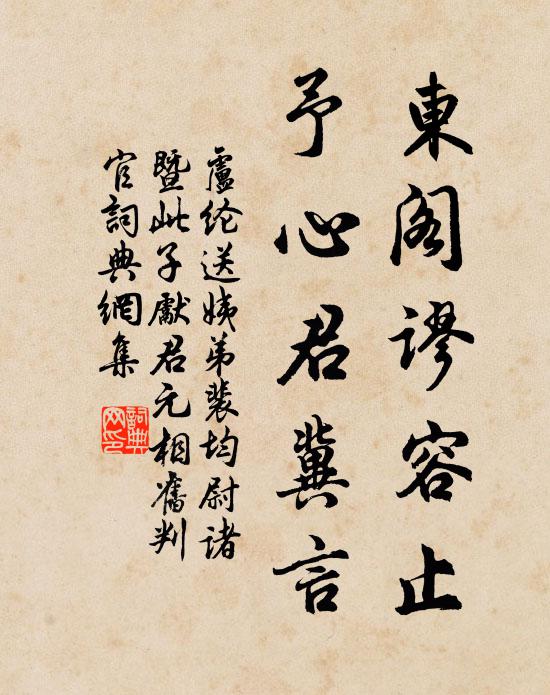 東閣謬容止
予心君冀言
盧綸送姨弟裴均尉諸
暨此子獻君元相舊判
官詞典網集
詞典网印